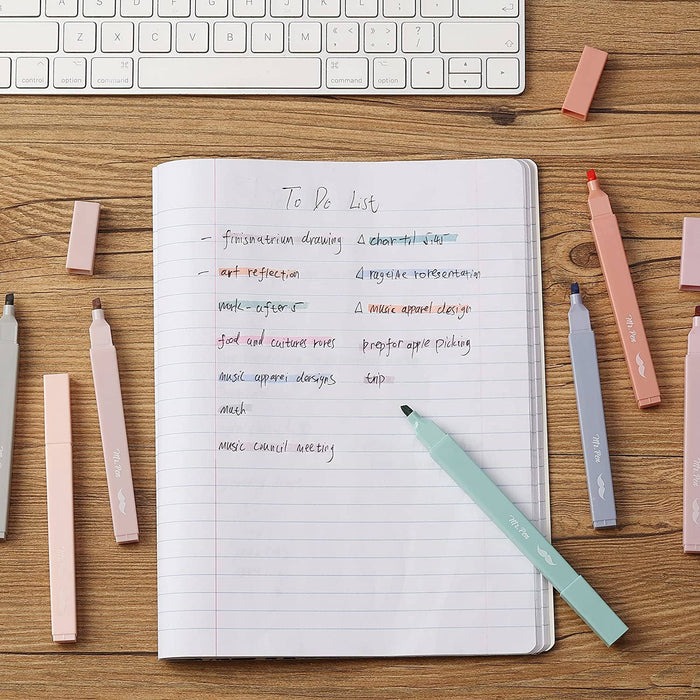 Z X C V B N M < > ? /
control option command command option
To Do List
– finisnatrium drawing
– art reflection
work - after 5
food and cultures rores
music apparel designs
math
music council meeting
△ chor til 5:45
△ ragtime roresentation
△ music apparel design
prep for apple picking
trip
Mr. Pen
Mr. Pen
Mr. Pen
Mr. Pen
Mr. Pen